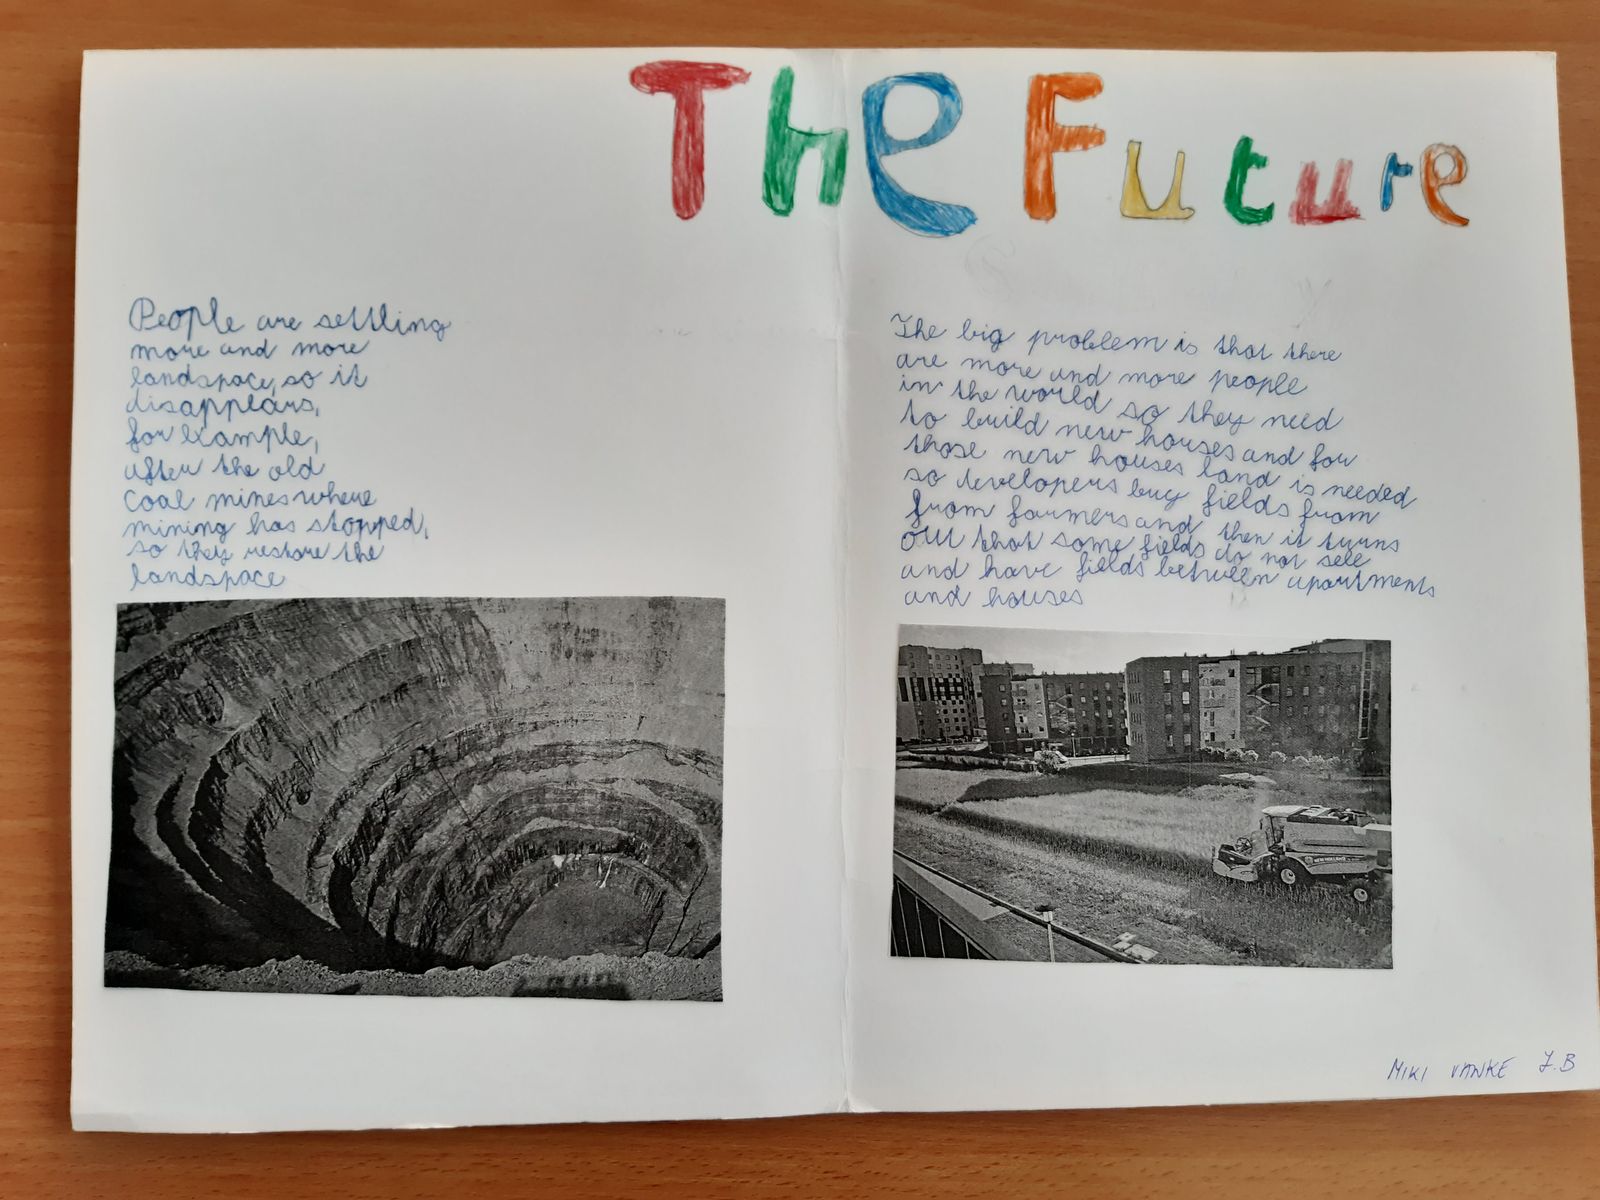 The Future
People are settling
more and more
landspace, so it
disappears,
for example,
after the old
coal mines where
mining has stopped,
so they restore the
landspace
The big problem is that there
are more and more people
in the world so they need
to build new houses and for
those new houses land is needed
so developers buy fields from
from farmers and then it turns
out that some fields do not sele
and have fields between apartments
and houses
NEW HOLLAND
MIKI VANKE 7.B